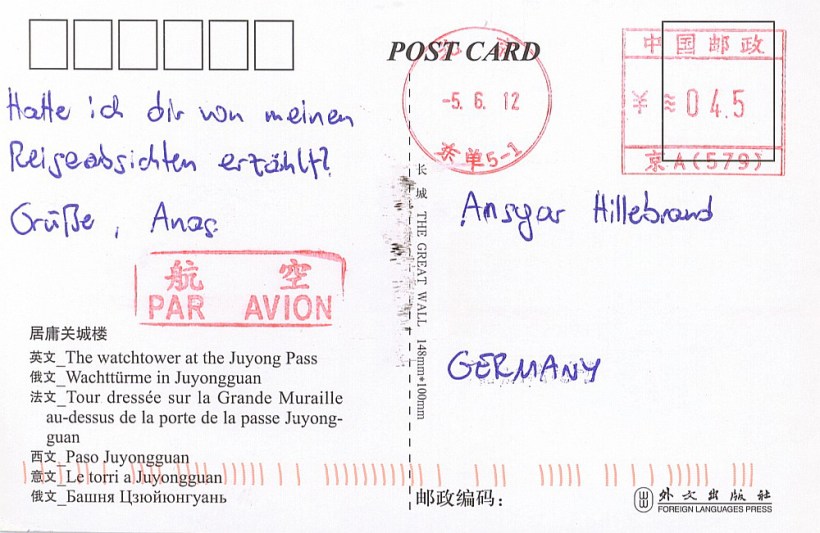 POST CARD
北 京
-5. 6. 12
东单5-1
中国邮政
¥ ≋04.5
京A(579)
Hatte ich dir von meinen
Reiseabsichten erzählt?
Grüße, Anas
航 空
PAR AVION
居庸关城楼
英文_The watchtower at the Juyong Pass
俄文_Wachttürme in Juyongguan
法文_Tour dressée sur la Grande Muraille
au-dessus de la porte de la passe Juyong-
guan
西文_Paso Juyongguan
意文_Le torri a Juyongguan
俄文_Башня Цзюйюнгуань
长城 THE GREAT WALL 148mm*100mm
Ansgar Hillebrand
GERMANY
邮政编码：
外文出版社
FOREIGN LANGUAGES PRESS